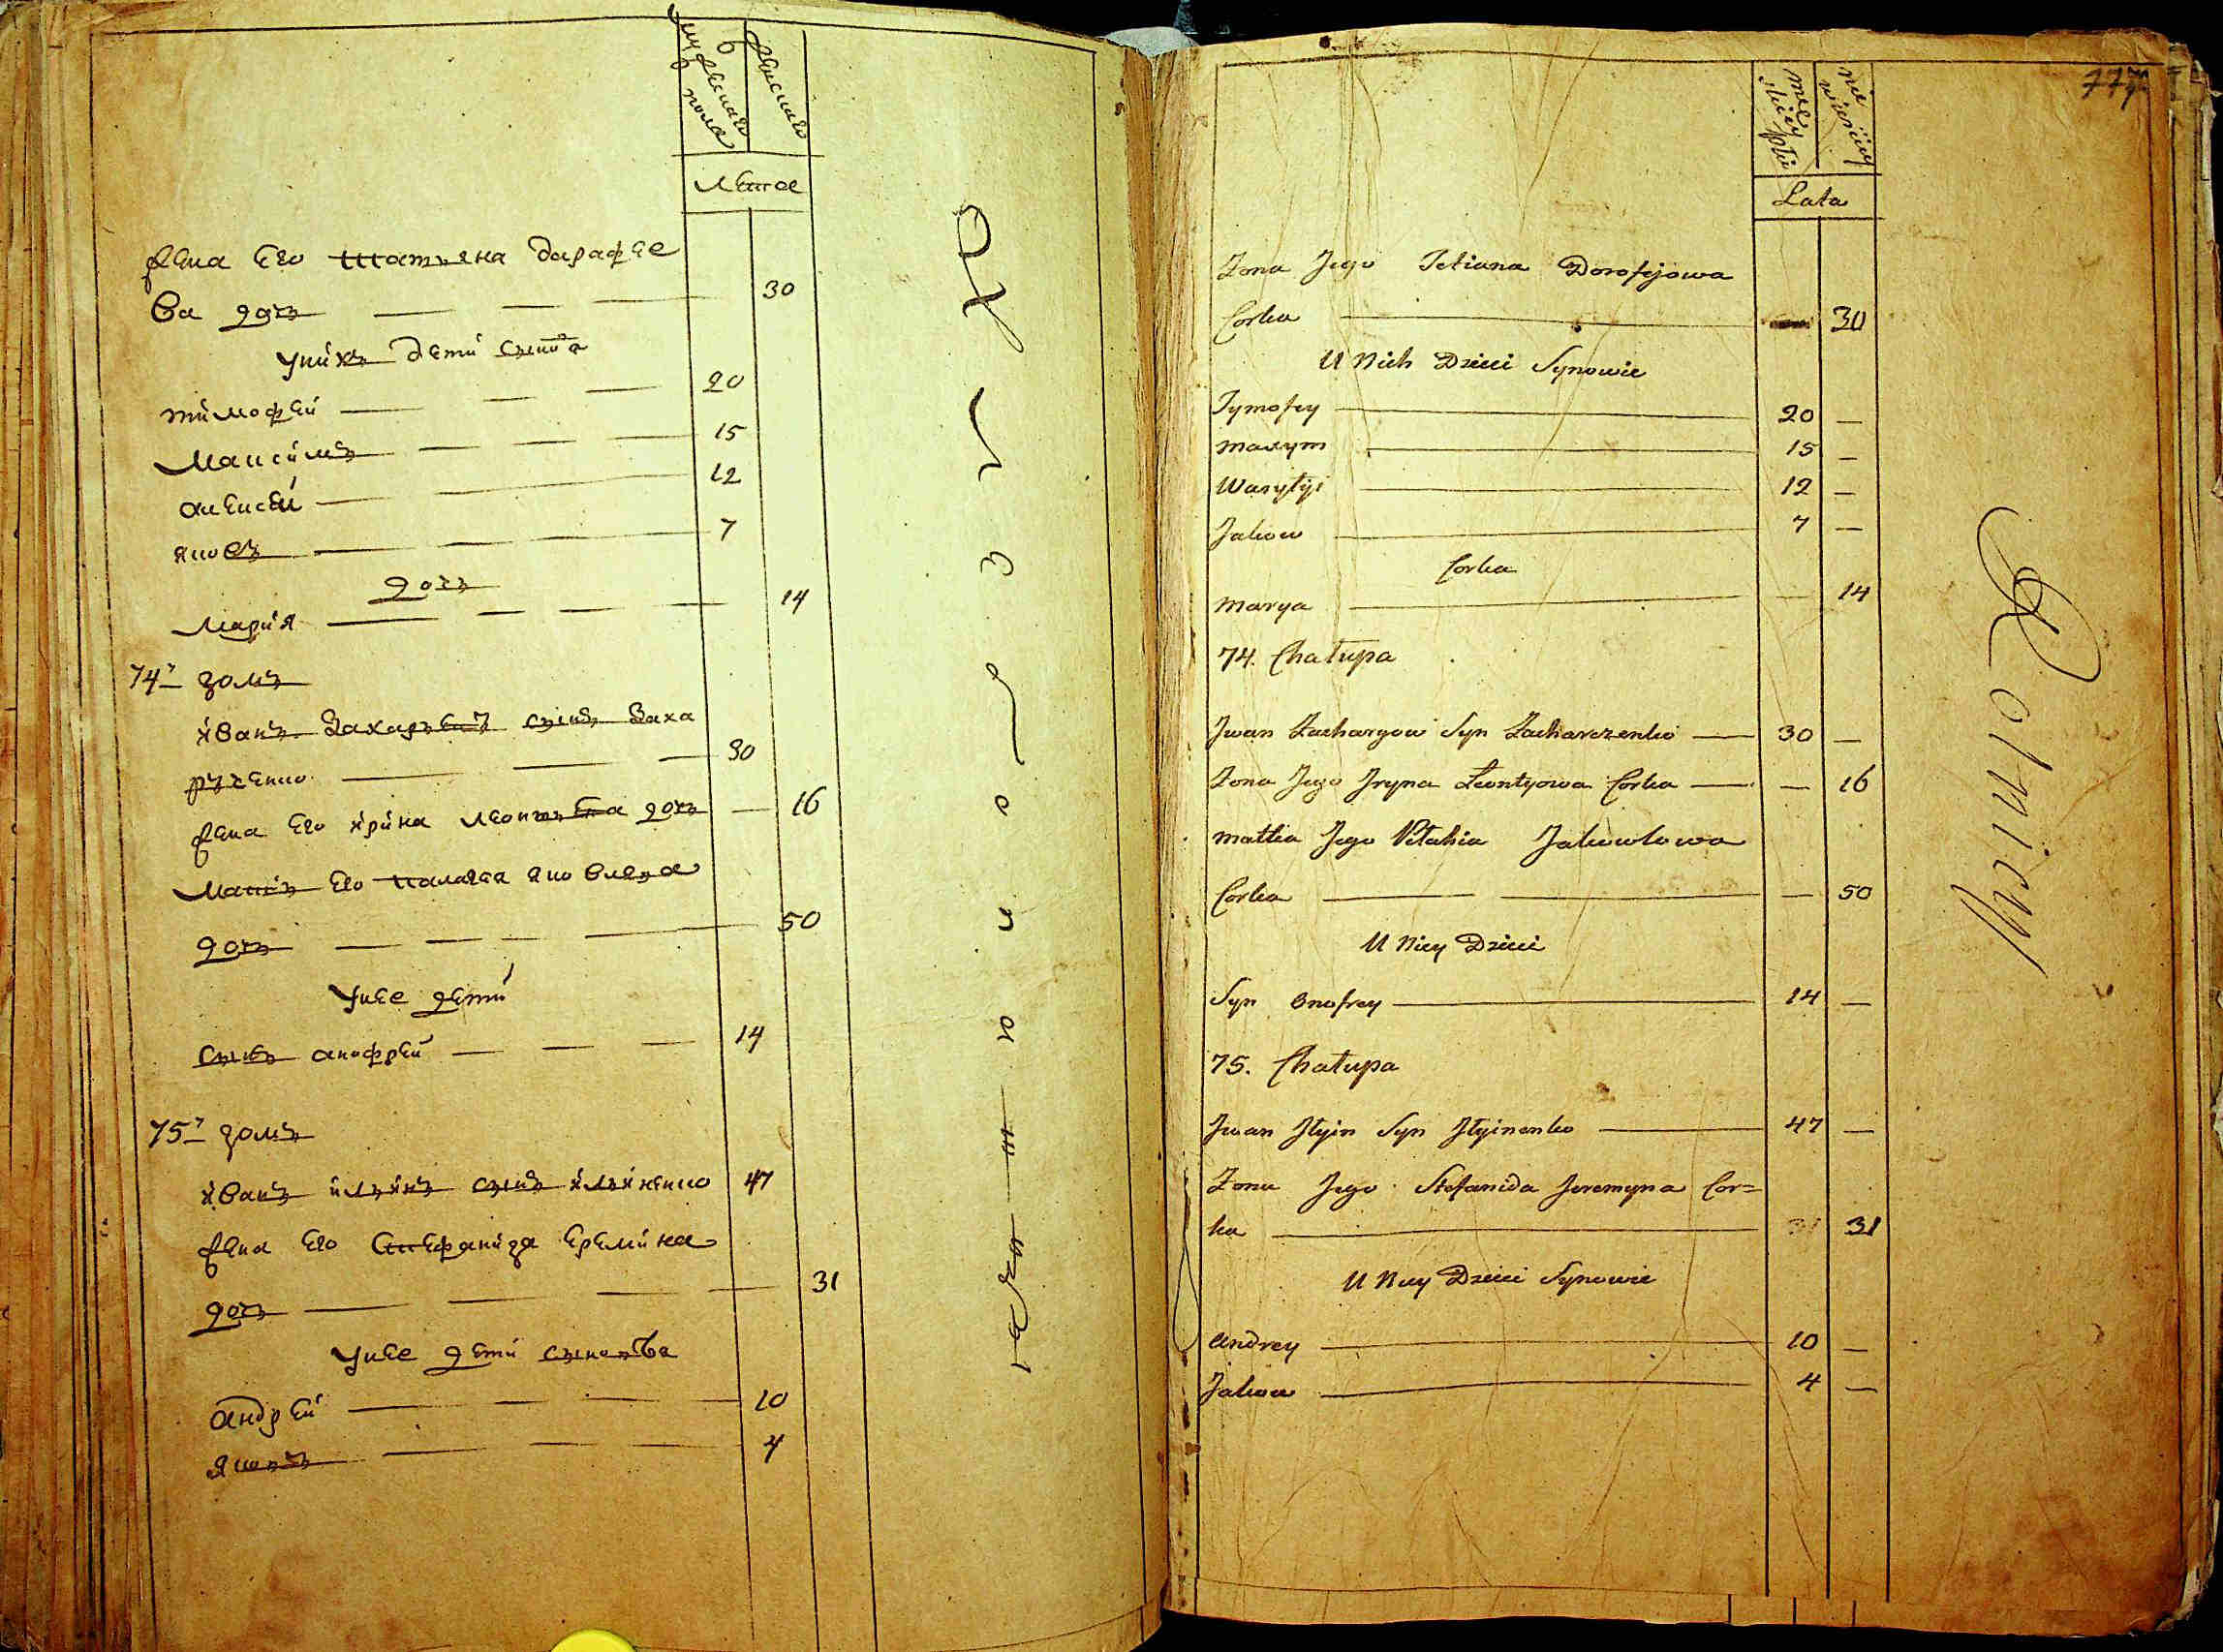 мужескаго
пола
женскаго
Лета
жена его татъяна дарафее
ва дочъ 30
у нихъ дети сынова
тимофей 20
Максимъ 15
алексей 12
яковъ 7
дочъ
Мария 14
74й домъ
иванъ Захаръевъ сынъ Заха
рученко 30
жена его ирина леонтъева дочъ 16
Матъ его палагея яковлева
дочъ 50
у нее дети
сынъ анофрей 14
75й домъ
иванъ илъинъ сынъ илъиненко 47
жена его Стефанида еремина
дочъ 31
у нее дети сыновъва
андрей 10
яковъ 4
177
męskiey płci
niewieściey
Lata
Zona Jego Tetiana Dorofejowa
Corka 30
U Nich Dzieci Synowie
Tymofey 20 —
Maxym 15 —
Wasylyi 12 —
Jakow 7 —
Corka
Marya — 14
74. Chałupa
Jwan Zacharyow Syn Zacharczenko 30 —
Zona Jego Jryna Leontyowa Corka — 16
Matka Jego Pelahia Jakowlowa
Corka — 50
U Niey Dzieci
Syn Onofrey 14 —
75. Chałupa
Jwan Jłyin Syn Jłyinenko 47 —
Zona Jego Stefanida Jeremyna Cor=
ka 31 31
U Niey Dzieci Synowie
Andrey 10 —
Jakow 4 —